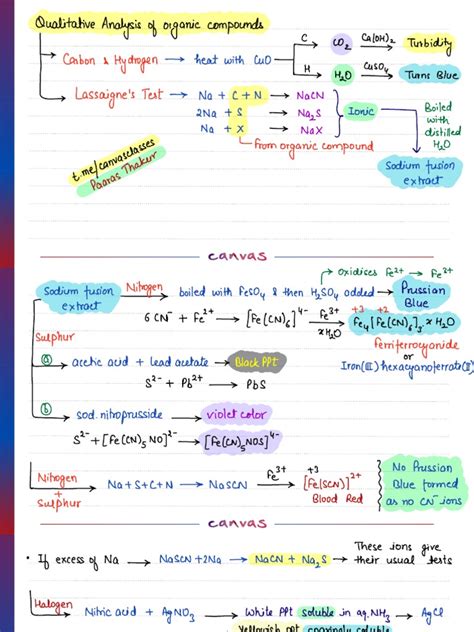 Qualitative Analysis of organic compounds
Carbon & Hydrogen → heat with CuO → C → CO₂ → Ca(OH)₂ → Turbidity
H → H₂O → CuSO₄ → Turns Blue
Lassaigne's Test → Na + C + N → NaCN
2Na + S → Na₂S
Na + X → NaX
Ionic
Boiled with distilled H₂O
from organic compound
Sodium fusion extract
t.me/canvasclasses
Paaras Thakur
canvas
oxidises Fe²⁺ → Fe³⁺
Sodium fusion extract → Nitrogen → boiled with FeSO₄ & then H₂SO₄ added → Prussian Blue
6 CN⁻ + Fe²⁺ → [Fe(CN)₆]⁴⁻ → Fe³⁺ xH₂O → +3 +2 Fe₄[Fe(CN)₆]₃.xH₂O
Ferriferrocyanide
or
Iron(III) hexacyanoferrate(II)
Sulphur
(a) acetic acid + lead acetate → Black PPt
S²⁻ + Pb²⁺ → PbS
(b) sod. nitroprusside → violet color
S²⁻ + [Fe(CN)₅NO]²⁻ → [Fe(CN)₅NOS]⁴⁻
Nitrogen + Sulphur → Na+S+C+N → NaSCN → Fe³⁺ → +3 [Fe(SCN)]²⁺
Blood Red
No Prussian Blue formed as no CN⁻ ions
canvas
• If excess of Na → NaSCN + 2Na → NaCN + Na₂S → These ions give their usual tests
Halogen → Nitric acid + AgNO₃ → White PPt soluble in aq. NH₃ → AgCl
Yellowish ppt sparingly soluble